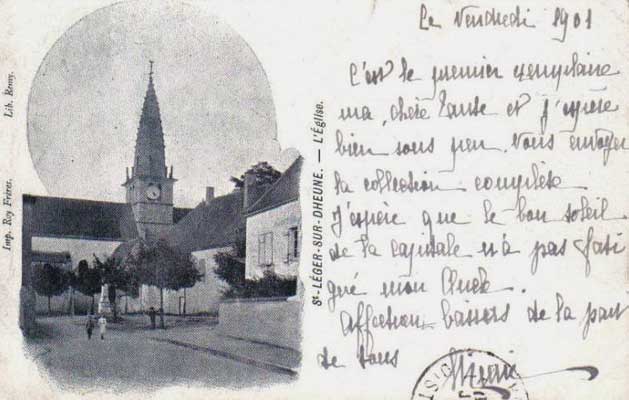 Le Vendredi 1901
C'est le premier exemplaire
ma chère tante et j'espère
bien sous peu vous envoyer
la collection complète
J'espère que le bon soleil
de la capitale n'a pas fati
gué mon Oncle.
Affection baisers de la part
de tous
St-LÉGER-SUR-DHEUNE. — L'Église.
Imp. Roy Frères. Lib. Remy.